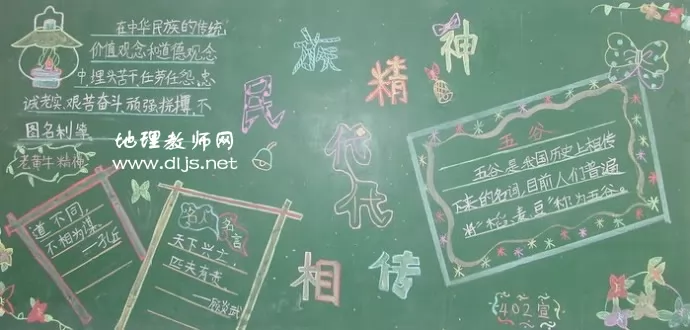 民族精神
代代相传
在中华民族的传统
价值观念和道德观念
中埋头苦干任劳任怨,忠
诚老实,艰苦奋斗顽强拼搏,不
图名利等
老黄牛精神
地理教师网
www.dljs.net
道不同,
不相为谋
——孔丘
名人名言
天下兴亡
匹夫有责。
——顾炎武
五谷
五谷是我国历史上相传
下来的名词,目前人们普遍
将“稻、麦、豆”称为五谷。
402宣